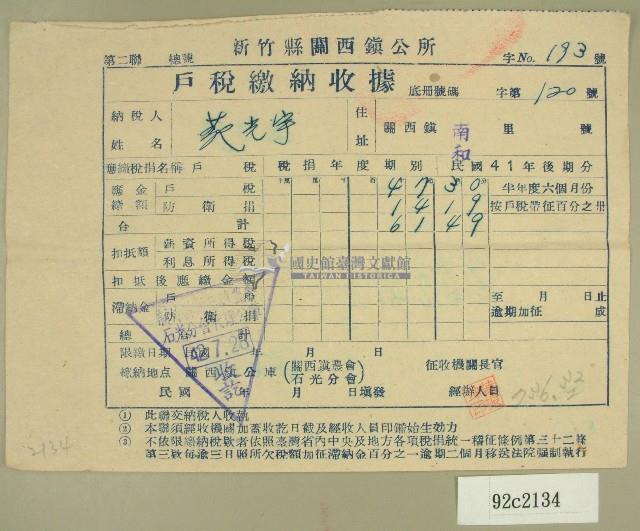 新竹縣關西鎮公所
第二聯 總號 字No. 193 號
戶稅繳納收據 底冊號碼 字第 120 號
納稅人姓名 光宇 住址 關西鎮 南和 里 號
應繳稅捐名稱 戶稅 稅捐年度期別 民國41年後期分
應金 戶稅 47 30 半年度六個月份
繳額 防衛捐 14 19 按戶稅帶征百分之卅
合計 61 49
扣抵額 薪資所得稅
利息所得稅
國史館臺灣文獻館
TAIWAN HISTORICA
扣抵後應繳金額
滯納金 戶稅 至 月 日止
防衛捐 逾期加征 成
總計
限繳日期 民國 年 月 日
42.7.28
收訖
繳納地点 關西鎮公庫 (關西鎮農會 石光分會) 征收機關長官
民國 年 月 日填發 經辦人員
① 此聯交納稅人收執
② 本聯須經收機國加蓋收訖日戳及經收人員印鑑始生効力
③ 不依限繳納稅欵者依照臺灣省內中央及地方各項稅捐統一稽征條例第三十二條
第三欵每逾三日照所欠稅額加征滯納金百分之一逾期二個月移送法院强制執行
2134
92c2134